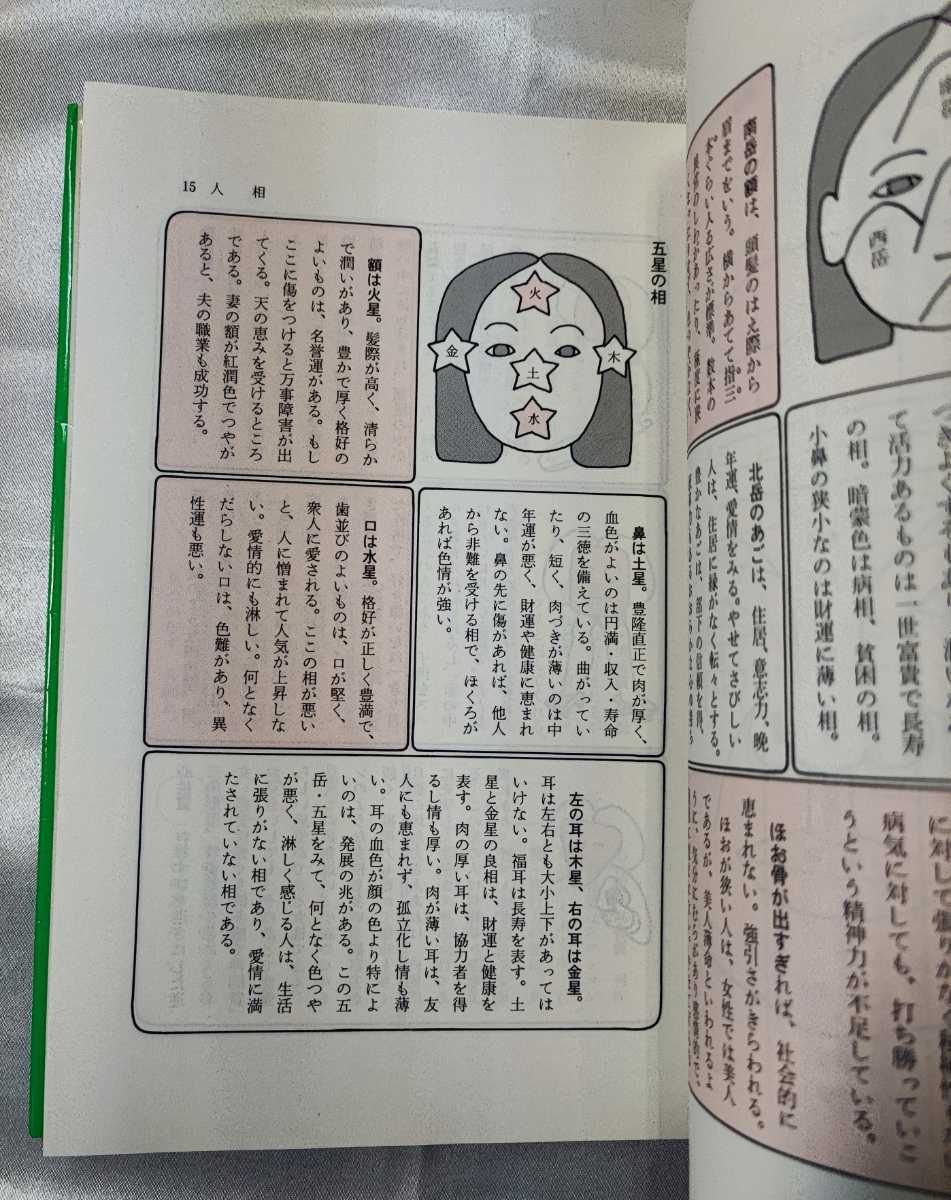 15 人 相
五星の相
火
金
土
木
水
額は火星。髪際が高く、清らか
で潤いがあり、豊かで厚く格好の
よいものは、名誉運がある。もし
ここに傷をつけると万事障害が出
てくる。天の恵みを受けるところ
である。妻の額が紅潤色でつやが
あると、夫の職業も成功する。
鼻は土星。豊隆直正で肉が厚く、
血色がよいのは円満・収入・寿命
の三徳を備えている。曲がってい
たり、短く、肉づきが薄いのは中
年運が悪く、財運や健康に恵まれ
ない。鼻の先に傷があれば、他人
から非難を受ける相で、ほくろが
あれば色情が強い。
口は水星。格好が正しく豊満で、
歯並びのよいものは、口が堅く、
衆人に愛される。ここの相が悪い
と、人に憎まれて人気が上昇しな
い。愛情的にも淋しい。何となく
だらしない口は、色難があり、異
性運も悪い。
左の耳は木星、右の耳は金星。
耳は左右とも大小上下があっては
いけない。福耳は長寿を表す。土
星と金星の良相は、財運と健康を
表す。肉の厚い耳は、協力者を得
るし情も厚い。肉が薄い耳は、友
人にも恵まれず、孤立化し情も薄
い。耳の血色が顔の色より特によ
いのは、発展の兆がある。この五
岳・五星をみて、何となく色つや
が悪く、淋しく感じる人は、生活
に張りがない相であり、愛情に満
たされていない相である。
西岳
南岳の額は、頭髪のはえ際から
眉までをいう。横からあてて指三
本ぐらい入る広さが標準。
て活力あるものは一世富貴で長寿
の相。暗蒙色は病相、貧困の相。
小鼻の狭小なのは財運に薄い相。
北岳のあごは、住居、意志力、晩
年運、愛情をみる。やせてさびしい
人は、住居に縁がなく転々とする。
豊かなあごは、部下の信頼を得、
病気に対しても、打ち勝っていこ
うという精神力が不足している。
ほお骨が出すぎれば、社会的に
恵まれない。強引さがきらわれる。
ほおが狭い人は、女性では美人
であるが、美人薄命といわれるよ